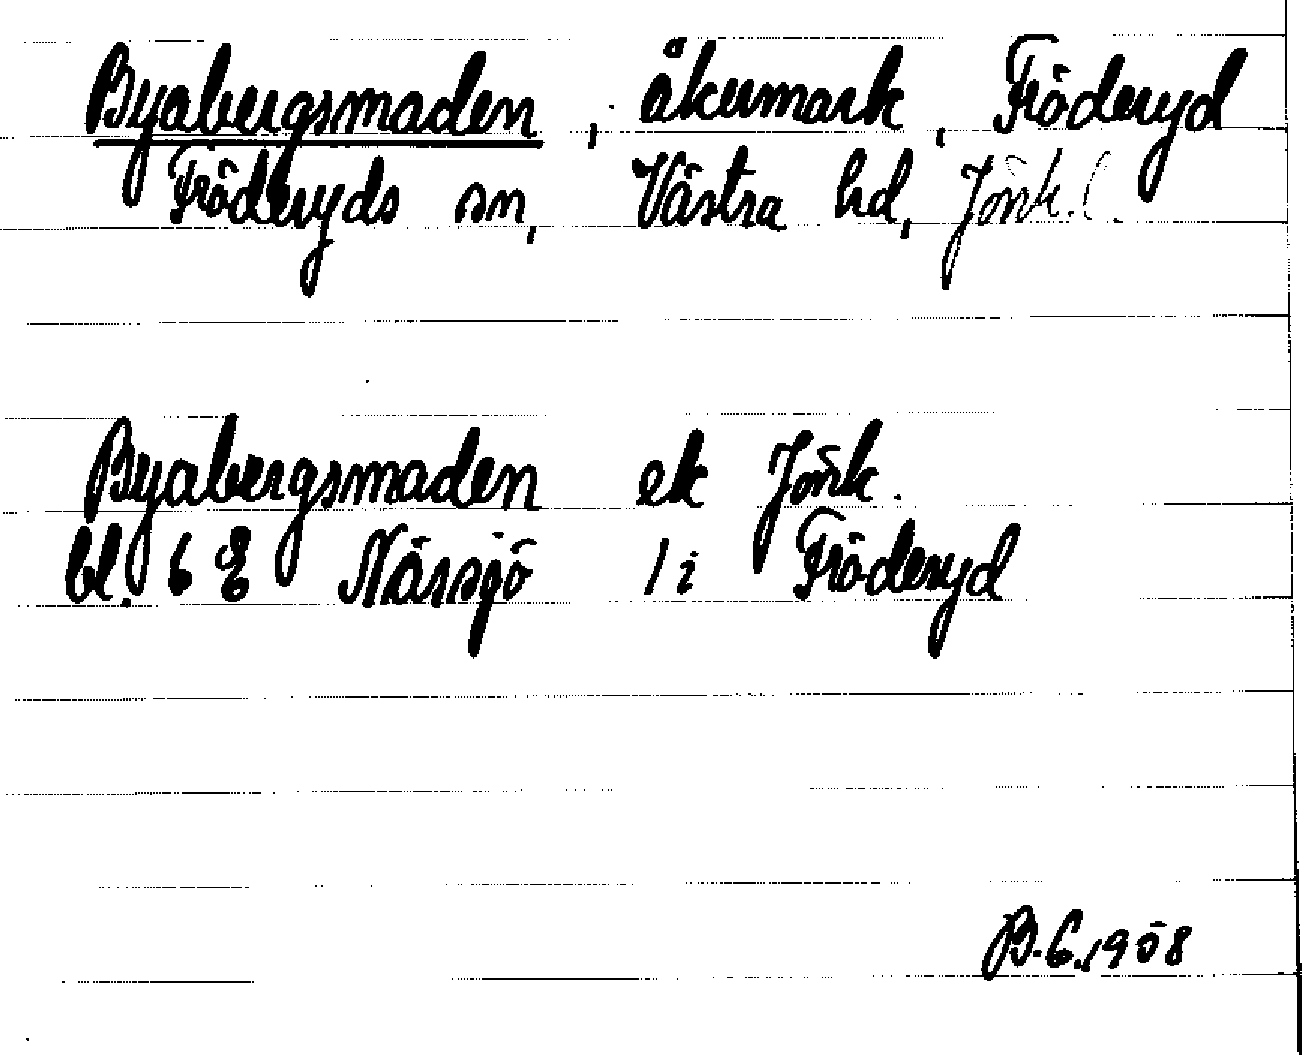 Byabergsmaden, åkermark, Fröderyd
Fröderyds sn, Västra hd, Jönk. l.
Byabergsmaden ek Jönk.
bl. 6 E Nässjö 1 i Fröderyd
B. G. 1958